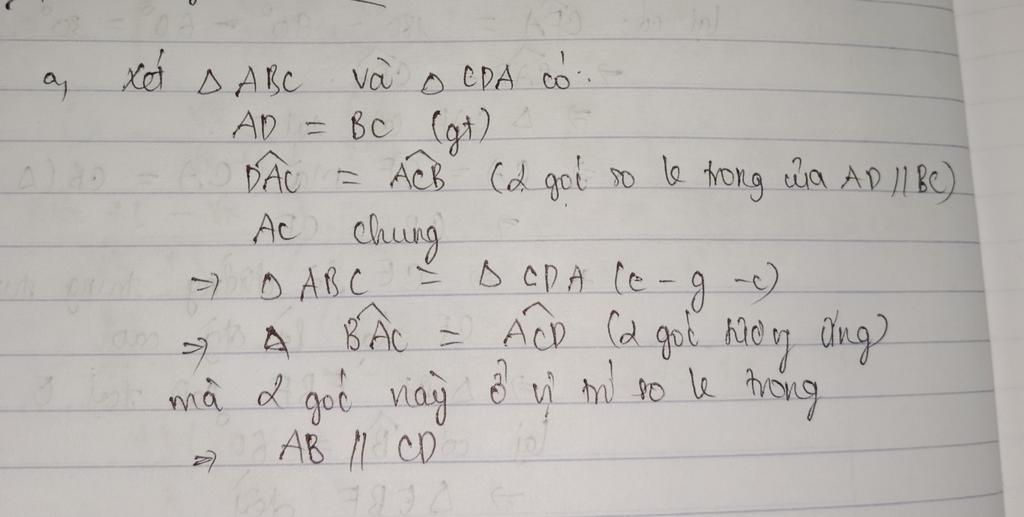 a, Xét Δ ABC và Δ CDA có:
AD = BC (gt)
DÂC = AĈB (2 góc so le trong của AD // BC)
AC chung
=> Δ ABC = Δ CDA (c - g - c)
=> Δ BÂC = AĈD (2 góc tương ứng)
mà 2 góc này ở vị trí so le trong
=> AB // CD